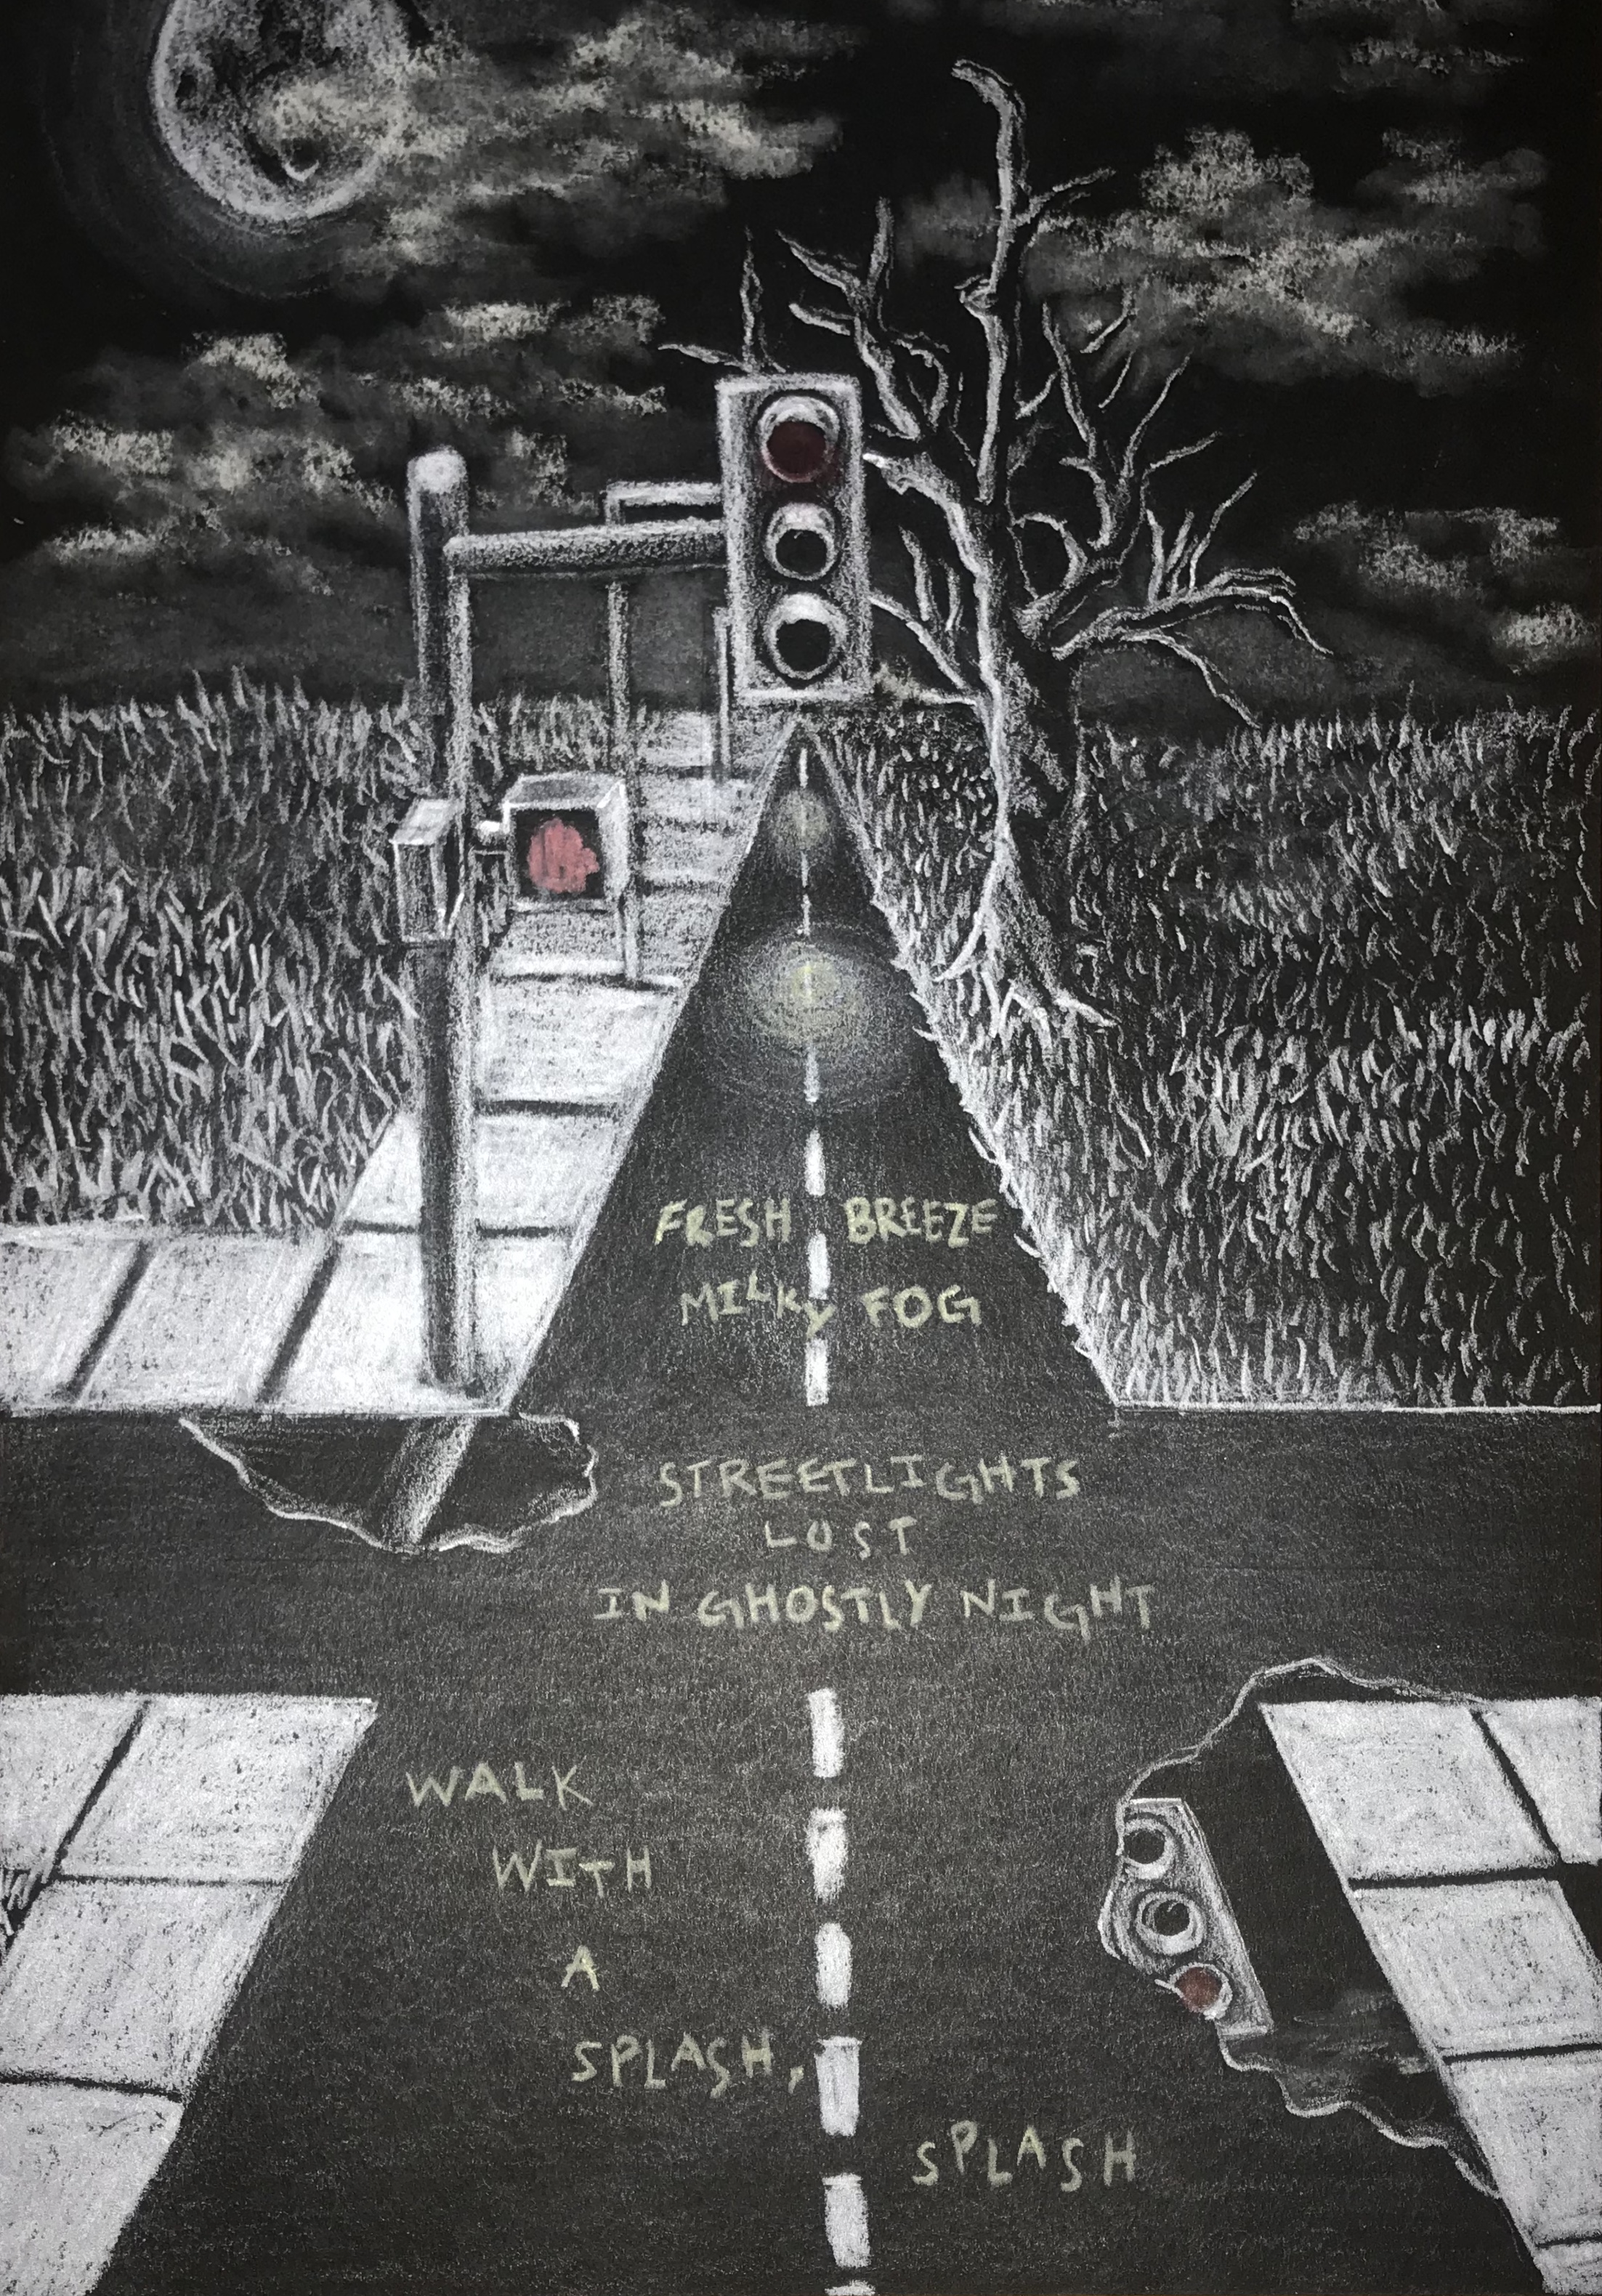 FRESH BREEZE
MILKY FOG
STREETLIGHTS
LOST
IN GHOSTLY NIGHT
WALK
WITH
A
SPLASH,
SPLASH